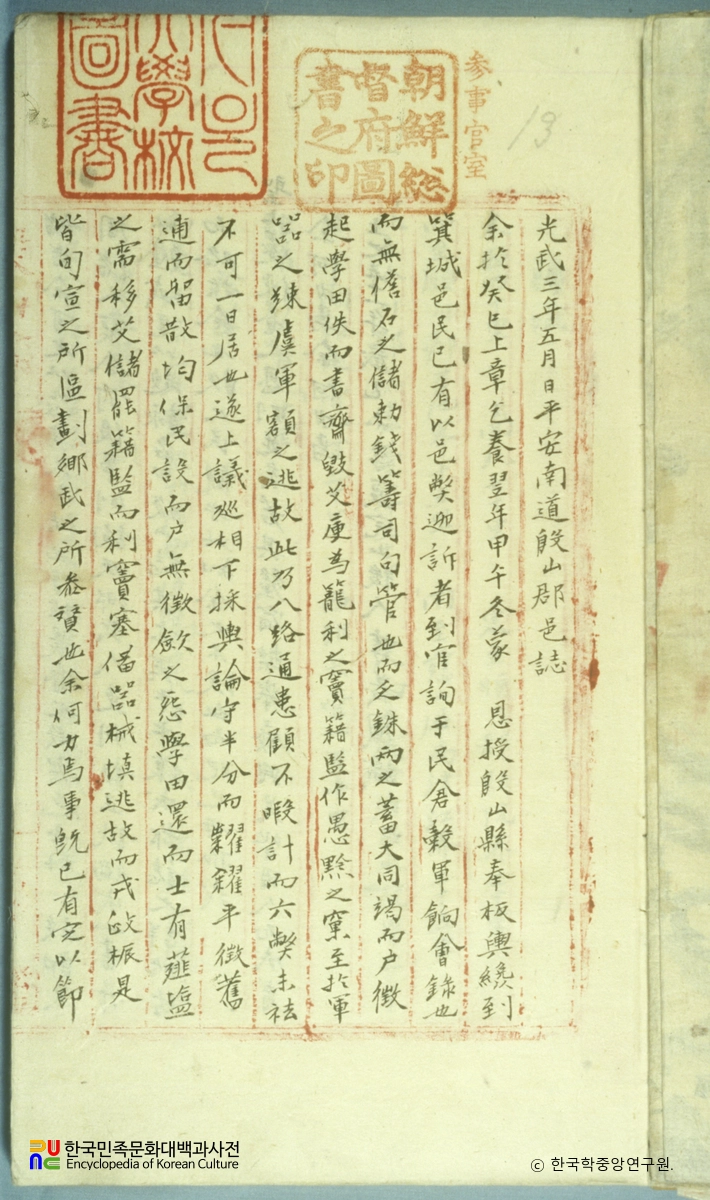 光武三年五月日平安南道殷山郡邑誌
余於癸巳上章乞養翌年甲午冬蒙 恩授殷山縣奉板輿纔到
箕城邑民已有以邑弊迎訴者到官詢于民倉穀軍餉會錄也
而無儋石之儲勅錢籌司句管也而乏銖兩之蓄大同竭而戶徵
起學田佚而書齋毀艾廋為籠利之竇籍監作愚黔之窠至於軍
器之踈虞軍額之逃故此乃八路通患顧不暇計而六弊未祛
不可一日居也遂上議巡相下採輿論守半分而糶糴平徵舊
逋而留散均保民設而戶無徵斂之怨學田還而士有薤塩
之需移艾儲罷籍監而利竇塞備器械塡逃故而戎政振是
皆旬宣之所區劃鄉武之所叅贊也余何力焉事旣已有完以節
參事官室
13
朝鮮総
督府圖
書之印
大學校
圖書
한국민족문화대백과사전
Encyclopedia of Korean Culture
© 한국학중앙연구원.